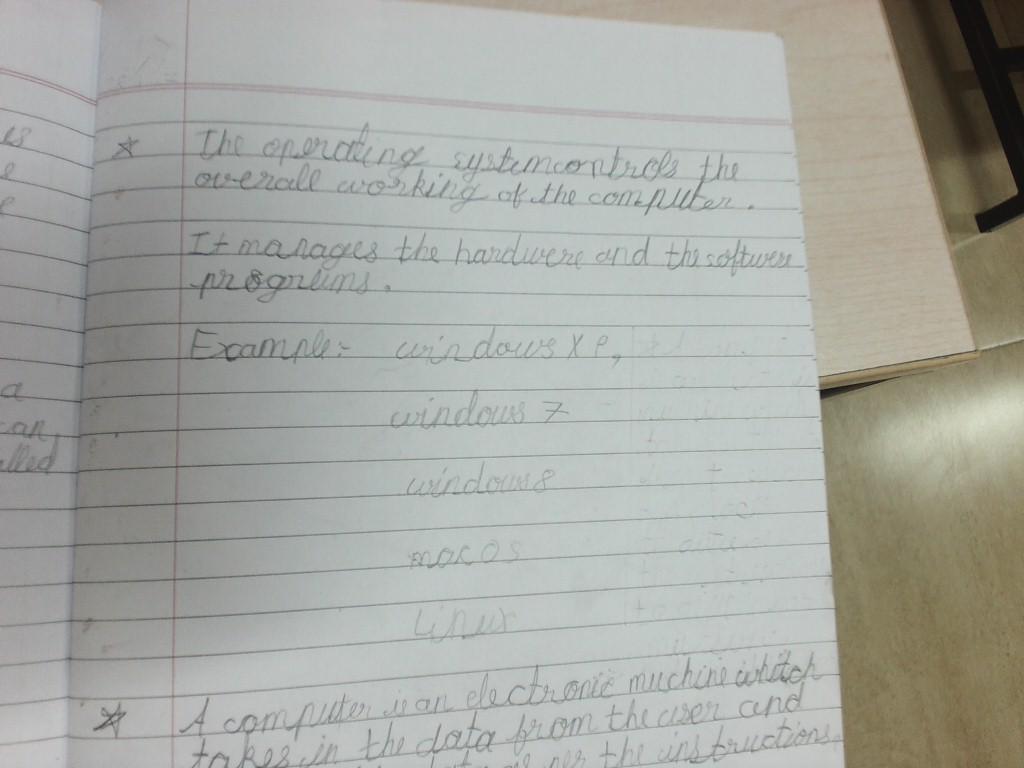 is
e
e
a
can
alled
☆ The operating systemcontrols the
overall working of the computer.
It manages the hardwere and the softwere
progrems.
Example:- windows XP,
windows 7
windows 8
mac OS
Linux
☆ A computer is an electronic muchine whitch
takes in the data from the user and
per the instructions.